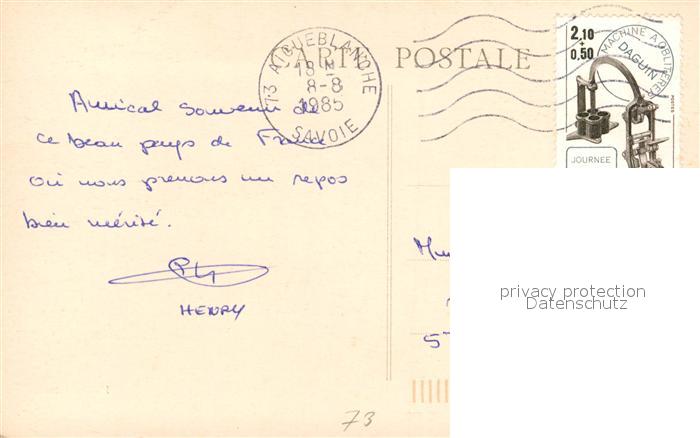 CARTE POSTALE
73 AIGUEBLANCHE
19 H
8-8
1985
SAVOIE
2,10
+
0,50
MACHINE A OBLITERER
DAGUIN
POSTES
JOURNEE
Amical souvenir de
ce beau pays de France
où nous prenons un repos
bien mérité.
HENRY
privacy protection
Datenschutz
73